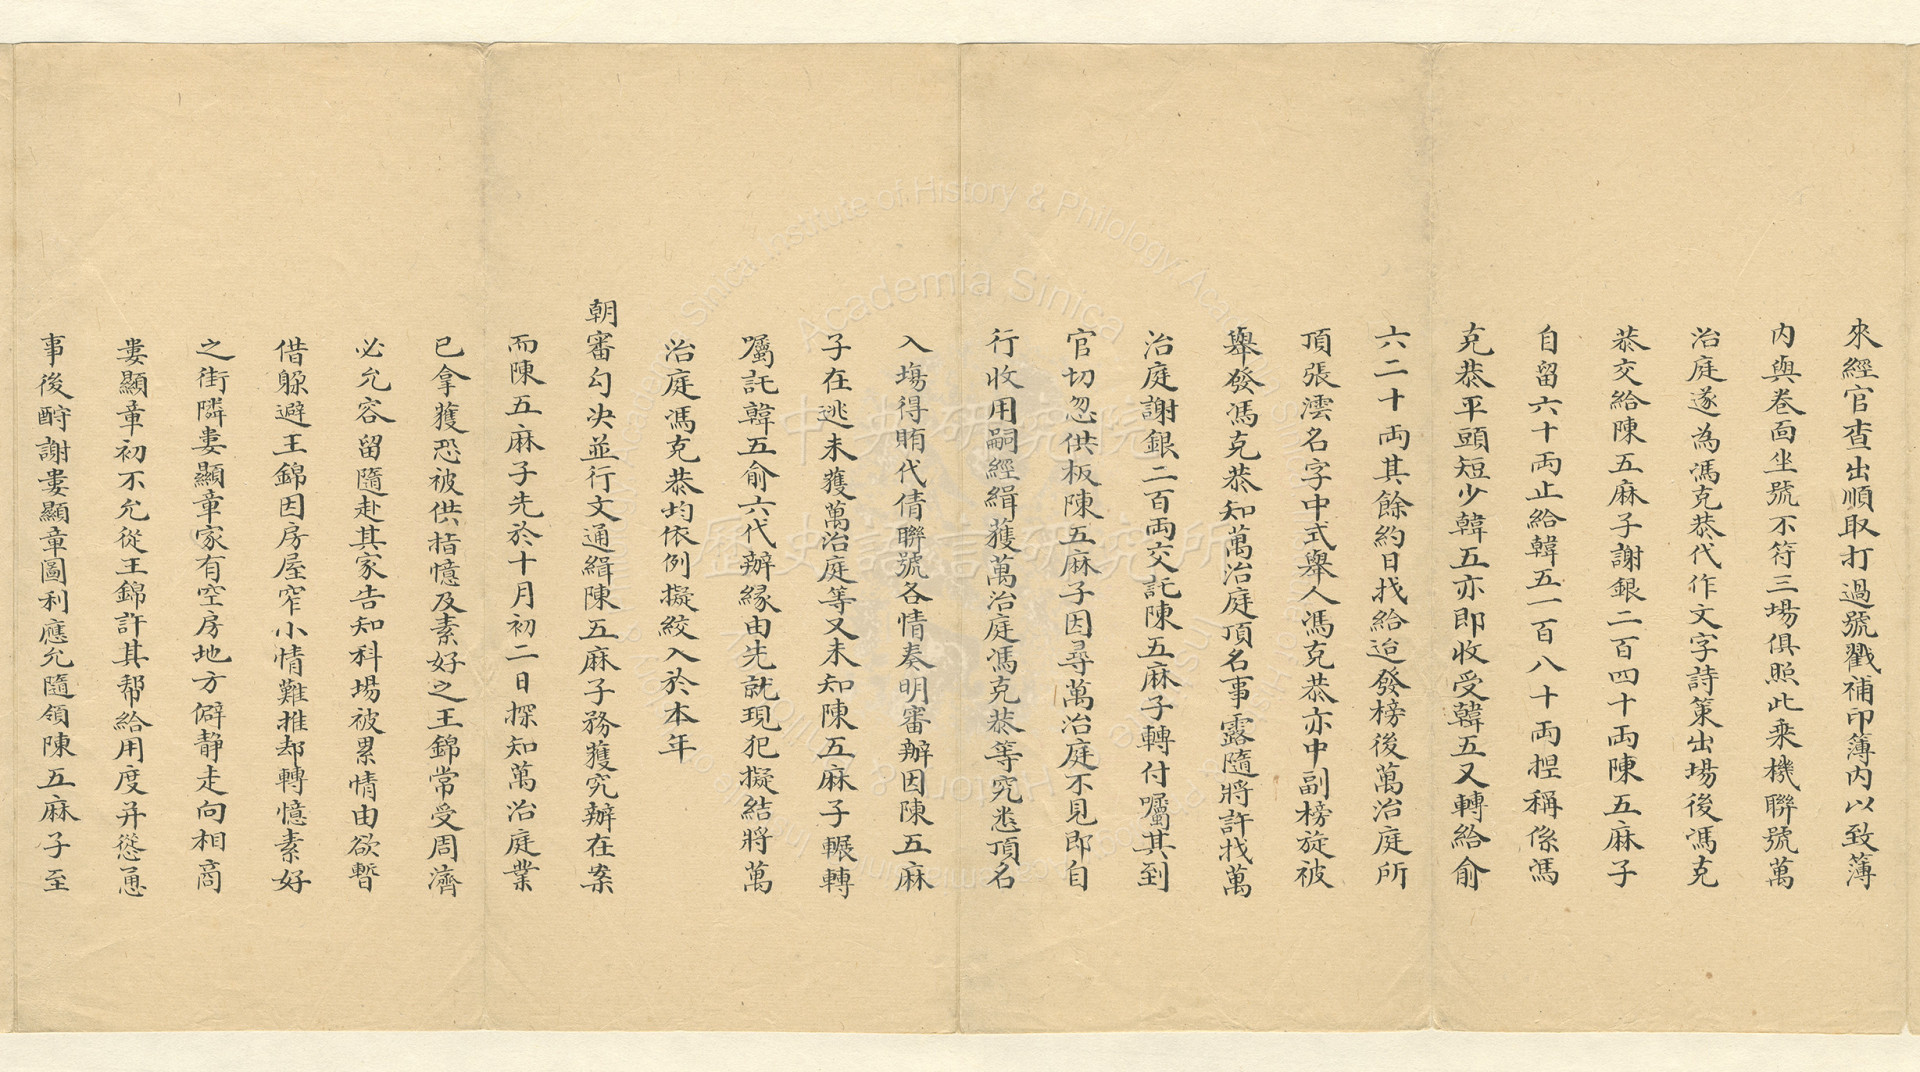 來經官查出順取打過號戳補印簿內以致薄
內與卷面坐號不符三場俱照此乘機聯號萬
治庭遂為馮克恭代作文字詩策出場後馮克
恭交給陳五麻子謝銀二百四十両陳五麻子
自留六十両止給韓五一百八十両捏稱係馮
克恭平頭短少韓五亦即收受韓五又轉給俞
六二十両其餘約日找給迨發榜後萬治庭所
頂張澐名字中式舉人馮克恭亦中副榜旋被
舉發馮克恭知萬治庭頂名事露隨將許找萬
治庭謝銀二百両交託陳五麻子轉付囑其到
官切忽供板陳五麻子因尋萬治庭不見即自
行收用嗣經緝獲萬治庭馮克恭等究悉頂名
入塲得賄代倩聯號各情奏明審辦因陳五麻
子在逃未獲萬治庭等又未知陳五麻子輾轉
囑託韓五俞六代辦緣由先就現犯擬結將萬
治庭馮克恭均依例擬絞入於本年
朝審勾決並行文通緝陳五麻子務獲究辦在案
而陳五麻子先於十月初二日探知萬治庭業
已拿獲恐被供指憶及素好之王錦常受周濟
必允容留隨赴其家告知科場被累情由欲暫
借躲避王錦因房屋窄小情難推却轉憶素好
之街隣婁顯章家有空房地方僻静走向相商
婁顯章初不允從王錦許其帮給用度并慫恿
事後酧謝婁顯章圖利應允隨領陳五麻子至
中央研究院
歷史語言研究所
Academia Sinica
Institute of History & Philology, Academia Sinica